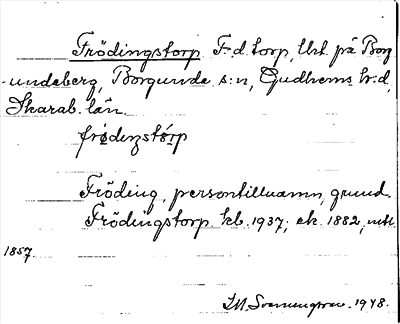 Frödingstorp F.d. torp, Urk. på Borg
undeberg, Borgunda s:n, Gudhems h:d,
Skarab. län
frødɩŋstɔrp
Fröding, persontillnamn, grund.
Frödingstorp kb. 1937; ek. 1882,
1857.
1948.